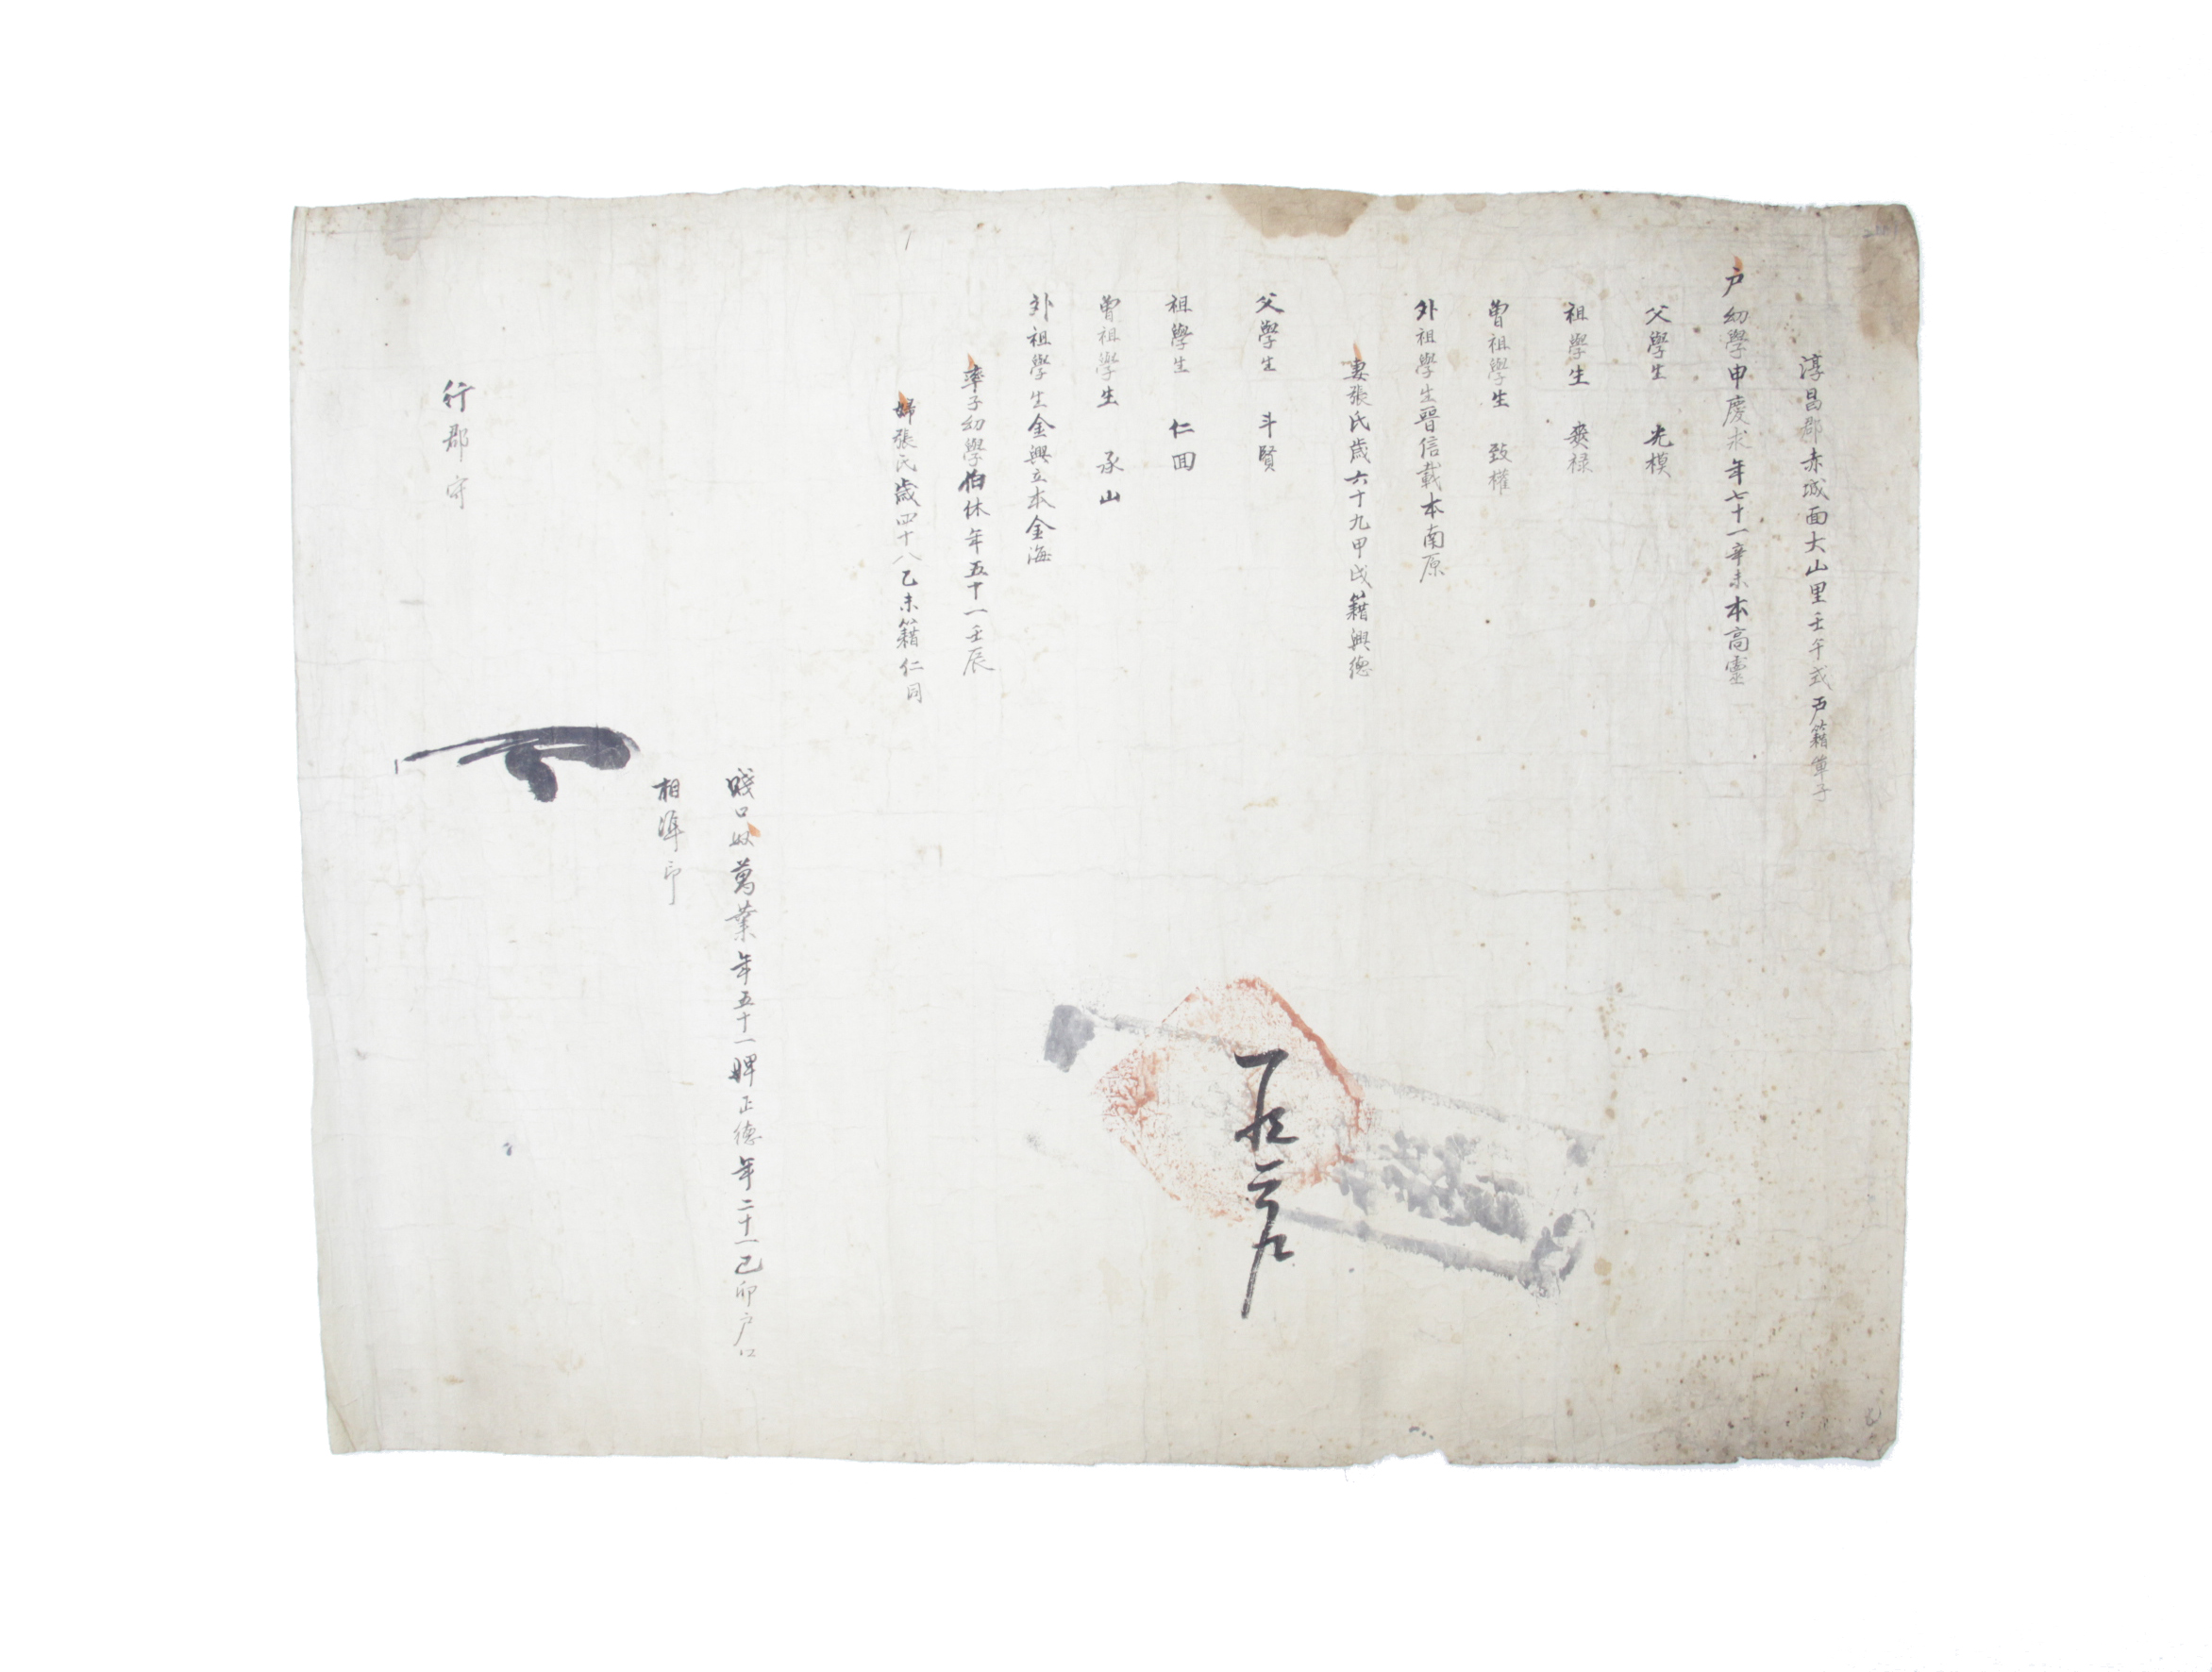 淳昌郡赤城面大山里壬午式戸籍單子
戸幼學申慶求年七十一辛未本高靈
父學生 光模
祖學生 奭禄
曽祖學生 致權
外祖學生晋信載本南原
妻張氏歳六十九甲戌籍興德
父學生 斗賢
祖學生 仁囬
曽祖學生 承山
外祖學生金興立本金海
率子幼學伯休年五十一壬辰
婦張氏歳四十八乙未籍仁同
賤口奴萬業年五十一婢正德年二十一己卯戸口
相準印
行郡守